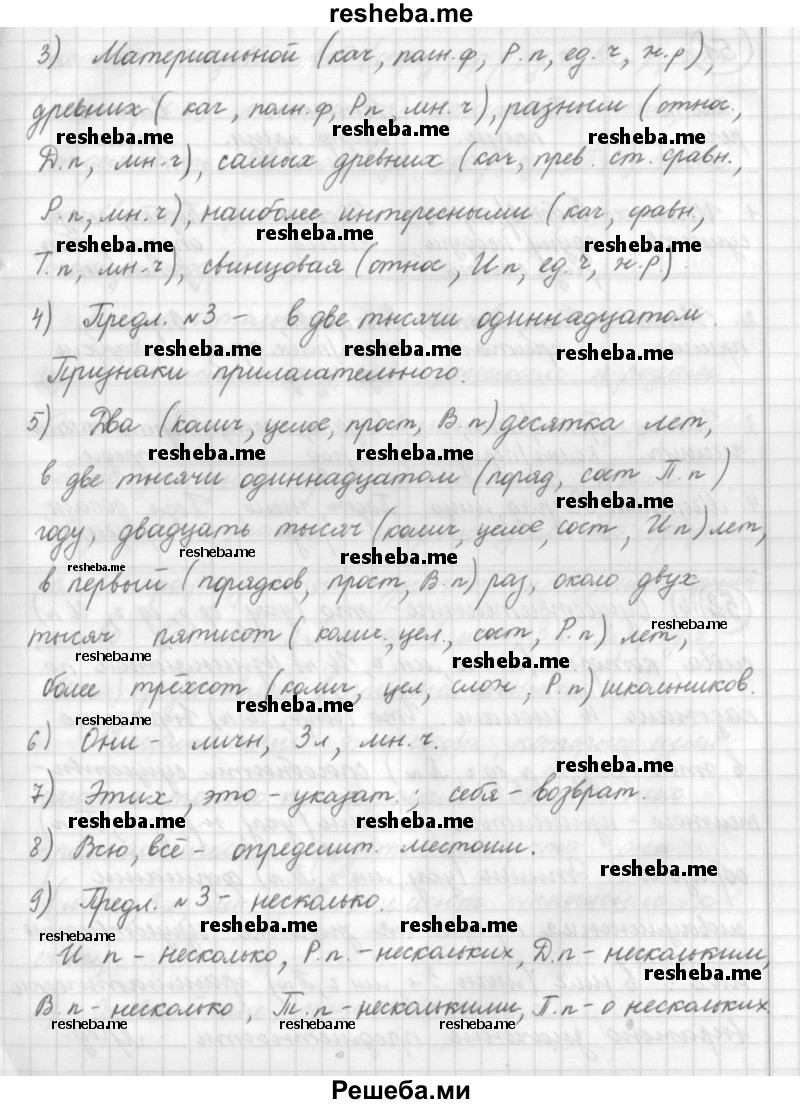 resheba.me
3) Материальной (кач, полн.ф, Р.п, ед.ч, ж.р),
древних (кач, полн.ф, Р.п, мн.ч), разным (относ.,
resheba.me resheba.me resheba.me
Д.п, мн.ч), самых древних (кач, прев. ст. сравн.,
Р.п, мн.ч), наиболее интересными (кач, сравн.,
resheba.me resheba.me resheba.me
Т.п, мн.ч), свинцовая (относ, И.п, ед.ч, ж.р).
4) Предл. №3 – в две тысячи одиннадцатом.
resheba.me resheba.me resheba.me
Признаки прилагательного.
5) Два (колич, целое, прост, В.п) десятка лет,
resheba.me resheba.me resheba.me
в две тысячи одиннадцатом (поряд, сост П.п)
resheba.me
году, двадцать тысяч (колич, целое, сост, И.п) лет,
resheba.me resheba.me resheba.me
в первый (порядков, прост, В.п) раз, около двух
тысяч пятисот (колич., цел, сост, Р.п) лет,
resheba.me resheba.me resheba.me
более трёхсот (колич, цел, слож, Р.п) школьников.
resheba.me resheba.me
6) Они – личн, 3л, мн.ч.
resheba.me
7) Этих, это – указат.; себя – возврат.
resheba.me resheba.me
8) Всю, всё – определит. местоим.
resheba.me
9) Предл. №3 – несколько.
resheba.me resheba.me resheba.me
И п – несколько, Р.п. – нескольких, Д.п – нескольким,
resheba.me
В.п – несколько, Т.п – несколькими, П.п – о нескольких
resheba.me resheba.me resheba.me
Решеба.ми